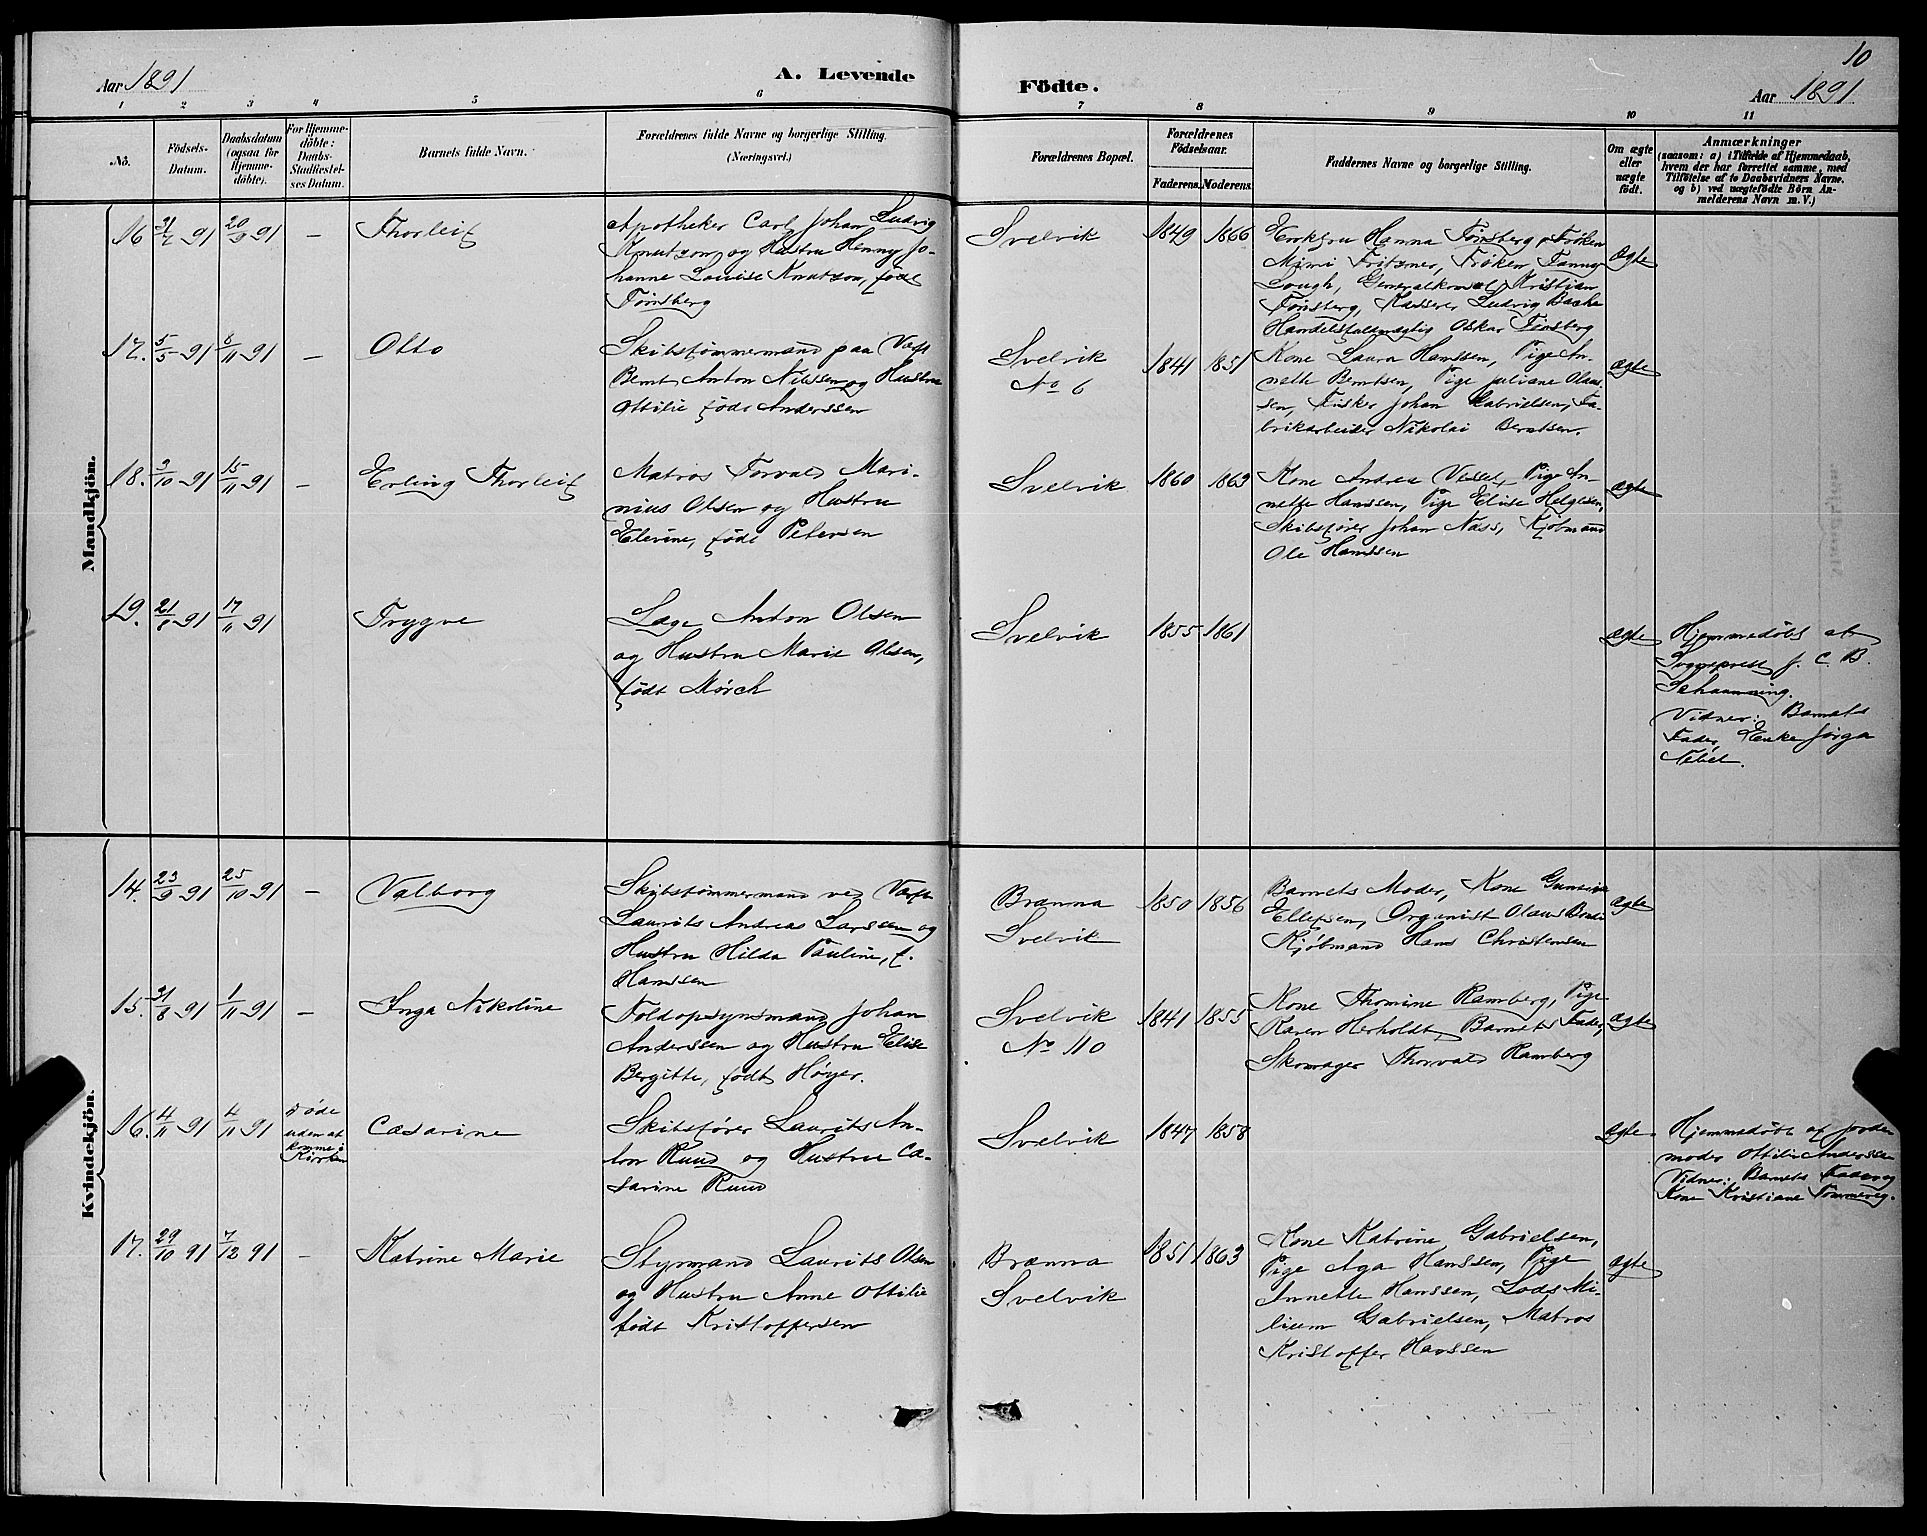 10
Aar 1891
A. Levende Födte.
Aar 1891
1 2 3 4 5 6 7 8 9 10 11
No.
Födsels-
Datum.
Daabsdatum
(ogsaa for
Hjemme-
döbte).
For Hjemme-
döbte:
Daabs-
Stadfæstel-
ses Datum.
Barnets fulde Navn.
Forældrenes fulde Navne og borgerlige Stilling.
(Næringsvei.)
Forældrenes Bopæl.
Forældrenes
Födselsaar.
Faderens. Moderens.
Faddernes Navne og borgerlige Stilling.
Om ægte
eller
uægte
født.
Anmærkninger
(saasom: a) i Tilfælde af Hjemmedaab,
hvem der har forrettet samme, med
Tilföielse af to Daabsvidners Navne.
og b) ved uægtefødte Börn An-
melderens Navn m. V.)
Mandkjön.
16 31/7 91 20/9 91 – Thorleif
Apotheker Carl Johan Ludvig
Knutzon og Hustru Henny Jo-
hanne Louise Knutzon, født
Tønsberg
Svelvik
1849 1866
Enkefru Hanna Tønsberg, Frøken
Mimi Fritzner, Frøken Fanny
Lough, Generalkonsul Kristian
Tønsberg, Kasserer Ludvig Bache
Handelsfuldmægtig Oskar Tønsberg
ægte
17. 5/5 91 8/11 91 – Otto
Skibstømmermand paa Værft
Bernt Anton Nilssen og Hustru
Ottilie født Anderssen
Svelvik
No 6
1841 1851
Kone Laura Hanssen, Pige An-
nette Berntsen, Pige Juliane Olaus-
sen, Fisker Johan Gabrielsen, Fa-
brikarbeider Nikolai Berntsen.
ægte
18. 3/10 91 15/11 91 – Erling Thorleif
Matros Torvald Mari-
nius Olsen og Hustru
Elevine, født Petersen
Svelvik
1860 1863
Kone Andrea Visset, Pige An-
nette Hanssen, Pige Elise Helgesen,
Skibsfører Johan Næss, Kjøbmand
Ole Hanssen
ægte
19. 21/8 91 17/11 91 Trygve
Læge Anton Olsen
og Hustru Marie Olsen,
født Mørch
Svelvik
1855 1861
ægte
Hjemmedøbt af
Sogneprest J. C. B.
Schanning.
Vidner: Barnets
Fader, Enke Jørga
Nebel.
Kvindekjön.
14. 23/9 91 25/10 91 – Valborg
Skibstømmermand ved Værft
Laurits Andreas Larssen og
Hustru Hilda Pauline, f.
Hanssen
Brænna
Svelvik
1850 1856
Barnets Moder, Kone
Ellefsen, Organist Olaus
Kjøbmand Hans Christensen
ægte
15. 31/8 91 1/11 91 – Inga Nikoline
Toldopsynsmand Johan
Anderssen og Hustru Elise
Bergitte, født Høyer.
Svelvik
No 110
1841 1855
Kone Thomine Ramberg, Pige
Karen Herholdt, Barnets Fader,
Skomager Thorvald Ramberg
ægte
16. 4/11 91 4/11 91 Døde
uden at
komme i
Kirken
Cæsarine
Skibsfører Laurits An-
ton Ruud og Hustru Cæ-
sarine Ruud
Svelvik
1847 1858
ægte.
Hjemmedøbt af Jorde-
moder Ottilie Anderssen
Vidner: Barnets Fader og
Kone Kristiane Tømmereg.
17. 29/10 91 7/12 91 – Katrine Marie
Styrmand Laurits Olsen
og Hustru Anne Ottilie
født Kristoffersen
Brænna
Svelvik
1851 1863
Kone Katrine Gabrielsen,
Pige Aga Hanssen, Pige
Annette Hanssen, Lods Mi-
lium Gabrielsen, Matros
Kristoffer Hanssen
ægte